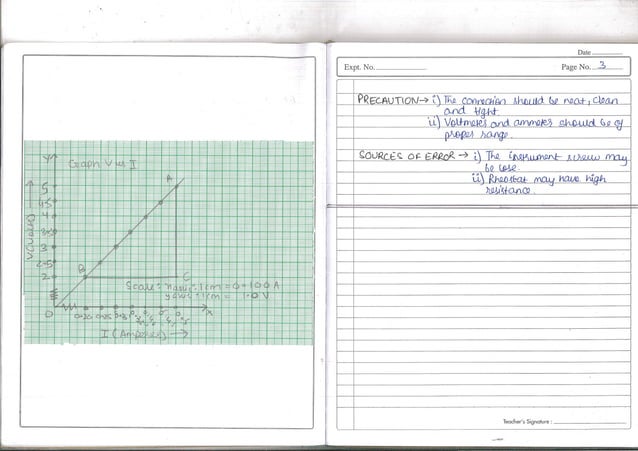 Y
Graph V vs I
A
5
4.5
4
3.5
3
2.5
2
B
C
V (Volts) →
Scale: x axis: 1cm = 0.100A
y axis: 1cm = 1.0 V
O
0.20 0.25
x
I (Amperes) →
Date
Expt. No.
Page No. 3
PRECAUTION → i) The connection should be neat, clean
and tight.
ii) Voltmeter and ammeter should be of
proper range.
SOURCES OF ERROR → i) The instrument screw may
be lose.
ii) Rheostat may have high
resistance.
Teacher's Signature :